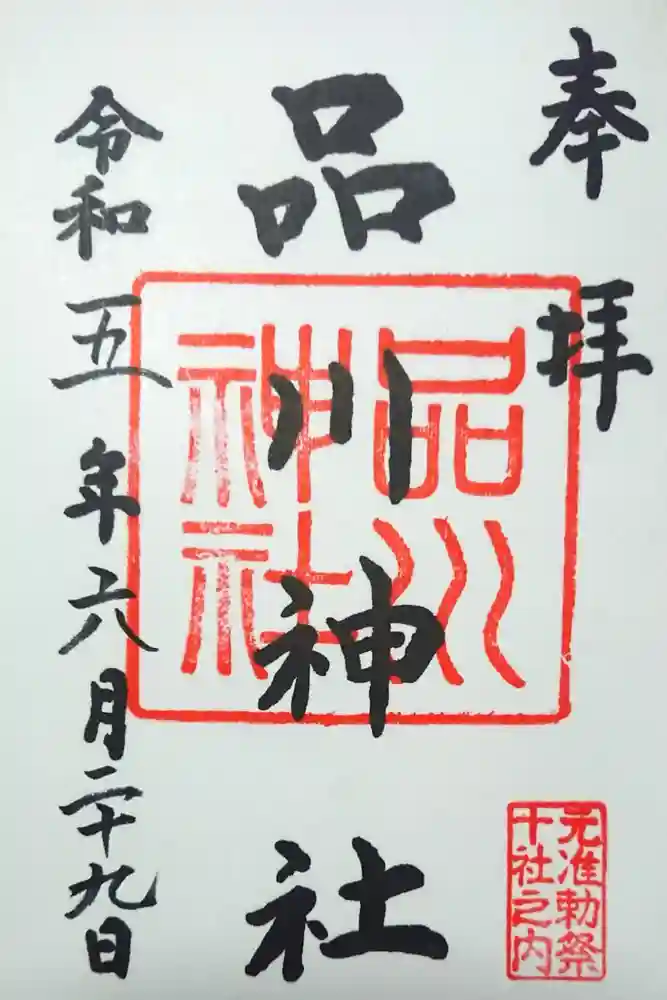 奉拝
品川神社
品川
神社
令和五年六月二十九日
元准勅祭
十社之内